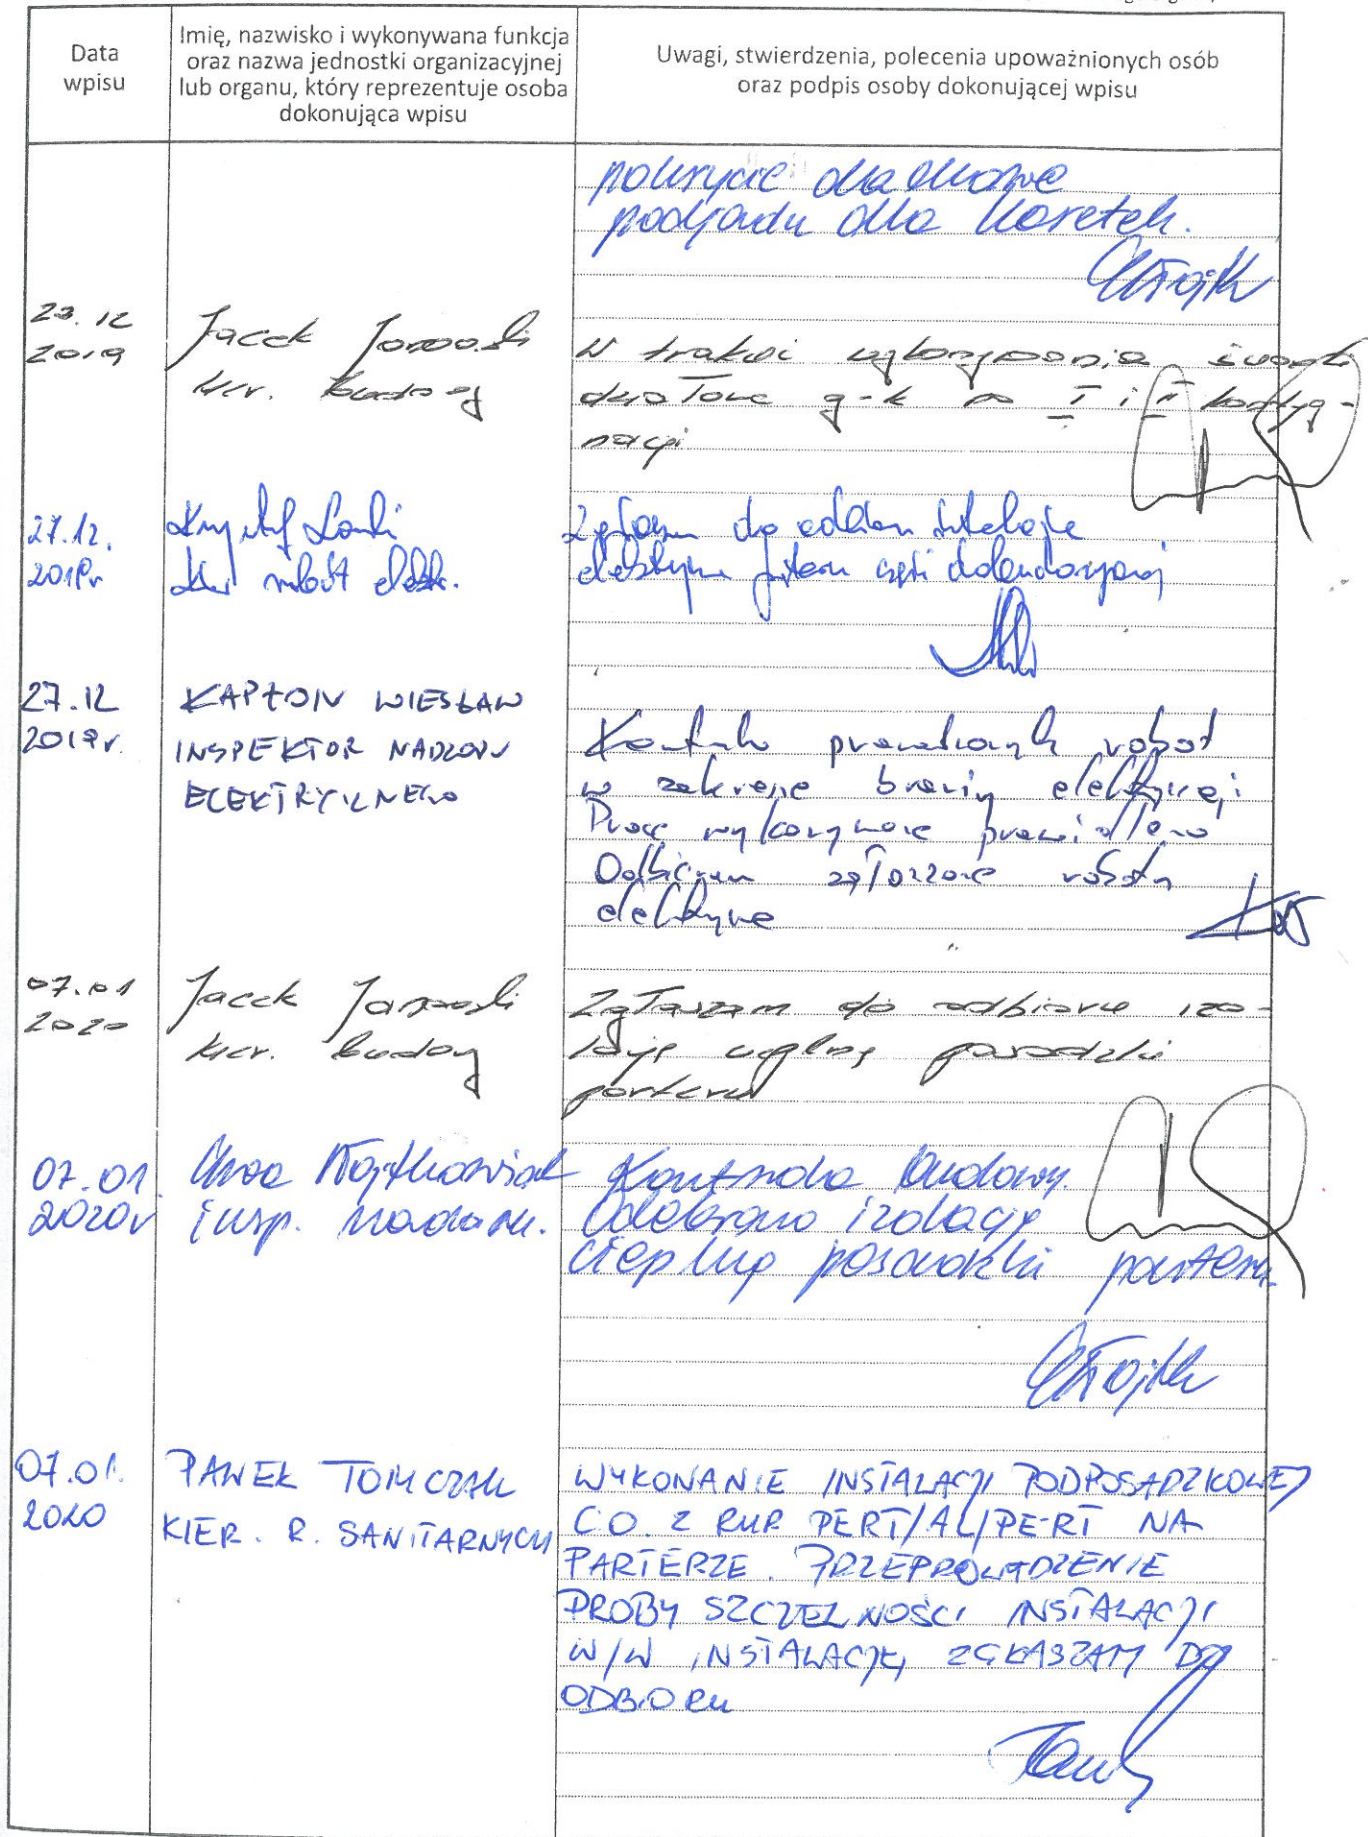 Data
wpisu
Imię, nazwisko i wykonywana funkcja
oraz nazwa jednostki organizacyjnej
lub organu, który reprezentuje osoba
dokonująca wpisu
Uwagi, stwierdzenia, polecenia upoważnionych osób
oraz podpis osoby dokonującej wpisu
pokrycie dachowe
podjazdu dla karetek.
23.12
2019
Jacek
kier. budowy
W trakcie
działowe g-k na I i II kondyg-
nacji
27.12.
2019r
Kier robót elektr.
Zgłaszam do odbioru instalacje
elektryczne parteru części
27.12
2019r.
KAPTON WIESŁAW
INSPEKTOR NADZORU
ELEKTRYCZNEGO
Kontrola prowadzonych robót
w zakresie branży elektrycznej
Prace wykonywane prawidłowo
Odbieram zgłoszone roboty
elektryczne
07.01
2020
Jacek
kier. budowy
Zgłaszam do odbioru izo-
lację cieplną posadzki
parteru
07.01.
2020r
Anna Wojtkowiak
insp. nadzoru.
Kontrola budowy.
Odebrano izolację
cieplną posadzki parteru
07.01.
2020
PAWEŁ TOMCZAK
KIER. R. SANITARNYCH
WYKONANIE INSTALACJI PODPOSADZKOWEJ
C.O. Z RUR PERT/AL/PE-RT NA
PARTERZE. PRZEPROWADZENIE
PROBY SZCZELNOŚCI INSTALACJI
W/W INSTALACJĘ ZGŁASZAM DO
ODBIORU